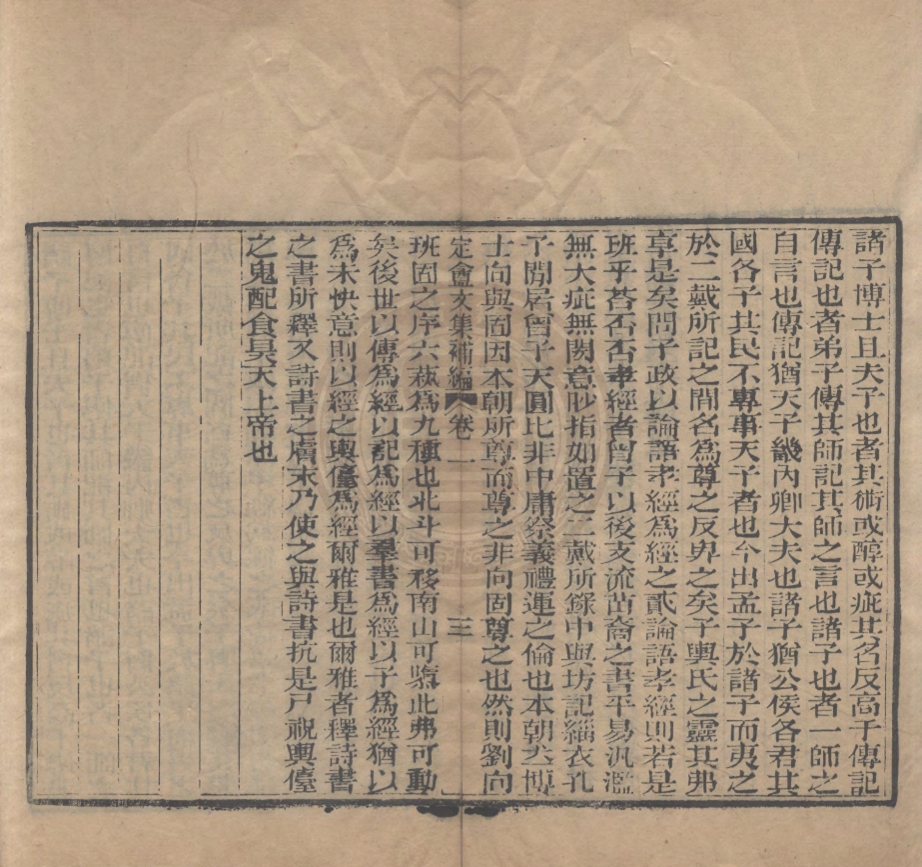 諸子博士且夫子也者其術或醇或疵其名反高于傳記
傳記也者弟子傳其師記其師之言也諸子也者一師之
自言也傳記猶天子畿內卿大夫也諸子猶公侯各君其
國各子其民不專事天子者也今出孟子於諸子而夷之
於二戴所記之間名爲尊之反卑之矣子輿氏之靈其弗
享是矣問子政以論語孝經爲經之貳論語孝經則若是
班乎荅否否孝經者曾子以後支流苗裔之書平易汎濫
無大疵無閎意眇指如置之二戴所錄中與坊記緇衣孔
子閒居曾子天圓比非中庸祭義禮運之倫也本朝立博
士向與固因本朝所尊而尊之非向固尊之也然則劉向
定盦文集補編 卷一 三
班固之序六蓺爲九種也北斗可移南山可隳此弗可動
矣後世以傳爲經以記爲經以羣書爲經以子爲經猶以
爲未快意則以經之輿儓爲經爾雅是也爾雅者釋詩書
之書所釋又詩書之膚末乃使之與詩書抗是尸祝輿儓
之鬼配食昊天上帝也